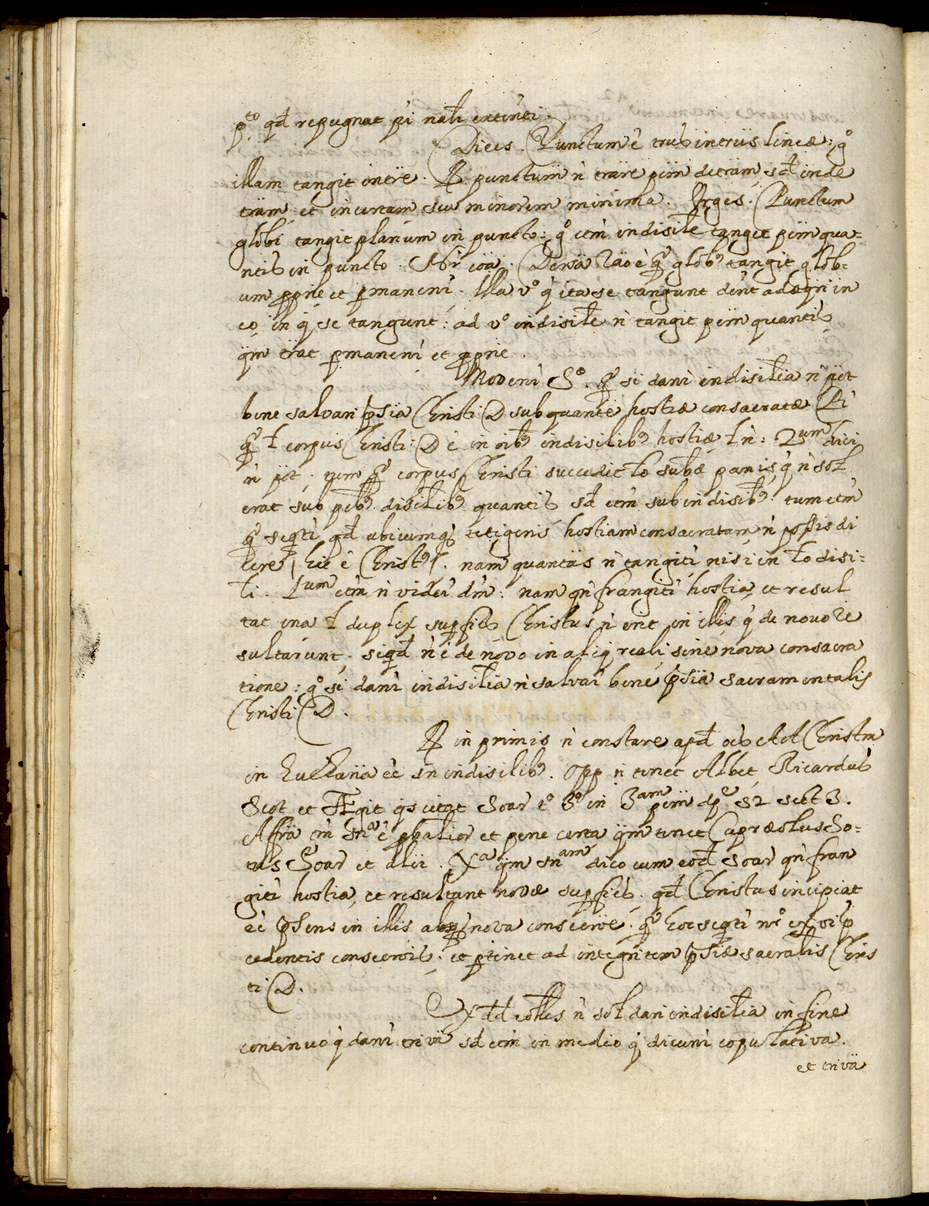 pto. qd repugnat pi nali extinti.
Dices. Punctum è trus intriis lineæ: qo
illam tangit intre. R punctum n trare pem detram, sd inde
tram et incertam seu minorem minima. Urges. Punctum
globi tangit planum in puncto: qo etm indisile tangit pem qua-
ntis in puncto. Ntr iõa. Dersa rão è qa glob9 tangit glob-
um pprie et pmanenr. Illa vo q ita se tangunt dent adæqri in
eo in q se tangunt: ad vo indisile n tangit pem quantis
qm erat pmanenr et pprie.
Moderni So. qa si danr indisilia n pot
bene salvari psia Christi D sub quante hostiæ consacratæ Pr
qa t corpus Christi D è in oib9 indisilib9 hostiæ t n: 2um dici
n pot. tum qa corpus Christi succedit to subæ panis, q n sol
erat sub ptib9 disilib9 quantis sd etm sub indisib9. tum etm
qa seqtr qd ubicumq; tetigeris hostiam consacratam n possis di
cere (hic è Christ9). nam quantas n tangitr nisi in to disi-
li. 1um etm n videtr dm: nam qn frangitr hostia, et resul
tat una t duplex supfies Christus n erit in illis q de novo re
sultarunt. siqd n è de novo in aliq reali sine nova consacra
tione: qo si danr indisilia n salvatr bene psia sacramentalis
Christi D.
R in primis n constare apd oes AA Christm
in Eucharia èe sn indisilib9. opp n tinet Albert Ricardus
Scot et Ægit qs citat Soar to 3o in 3am pem dpe 52 sect 3.
Affra tm sna è pbalior et pene certa qm tinet Capræolus So-
tus Soar et alii. Xa qm snam dico cum eod Soar qn fran
gitr hostia, et resultant novæ supfies. qd Christus incipiat
èe psens in illis absq; nova conscrone. qa hoc seqtr nro ex vi p
cedentis conscronis. et ptinet ad integritem psiæ sacralis Chris
ti D.
Xdd colles n sol dari indisilia in fine
continuo q danr triva sd etm in medio q dicunr copulativa.
et triva